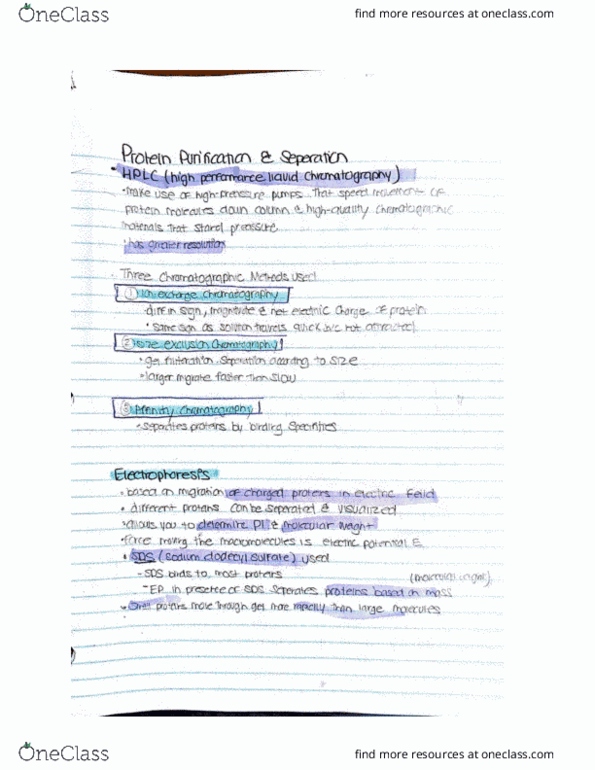 OneClass
find more resources at oneclass.com
Protein Purification & Seperation
• HPLC (high performance liquid chromatography)
• make use of high-pressure pumps that speed movement of
protein molecules down column & high-quality chromatographic
materials that stand pressure
• has greater resolution
• Three Chromatographic Methods used
① Ion exchange chromatography
• diff in sign, magnitude & net electric charge of protein
• same sign as solution travels quick b/c not attracted
② size exclusion chromatography
• gel filtration separation according to size
• larger migrate faster than slow
③ Affinity chromatography
• separates proteins by binding
Electrophoresis
• based on migration of charged proteins in electric Feild
• different proteins can be separated & visualized
• allows you to determine PI & molecular weight
• force moving the macromolecules is electric potential E
• SDS (sodium dodecyl sulfate) used
- SDS binds to most proteins
(molecular weight)
- EP in presence of SDS seperates proteins based on mass
• Small proteins move through gel more rapidly than large molecules
OneClass
find more resources at oneclass.com